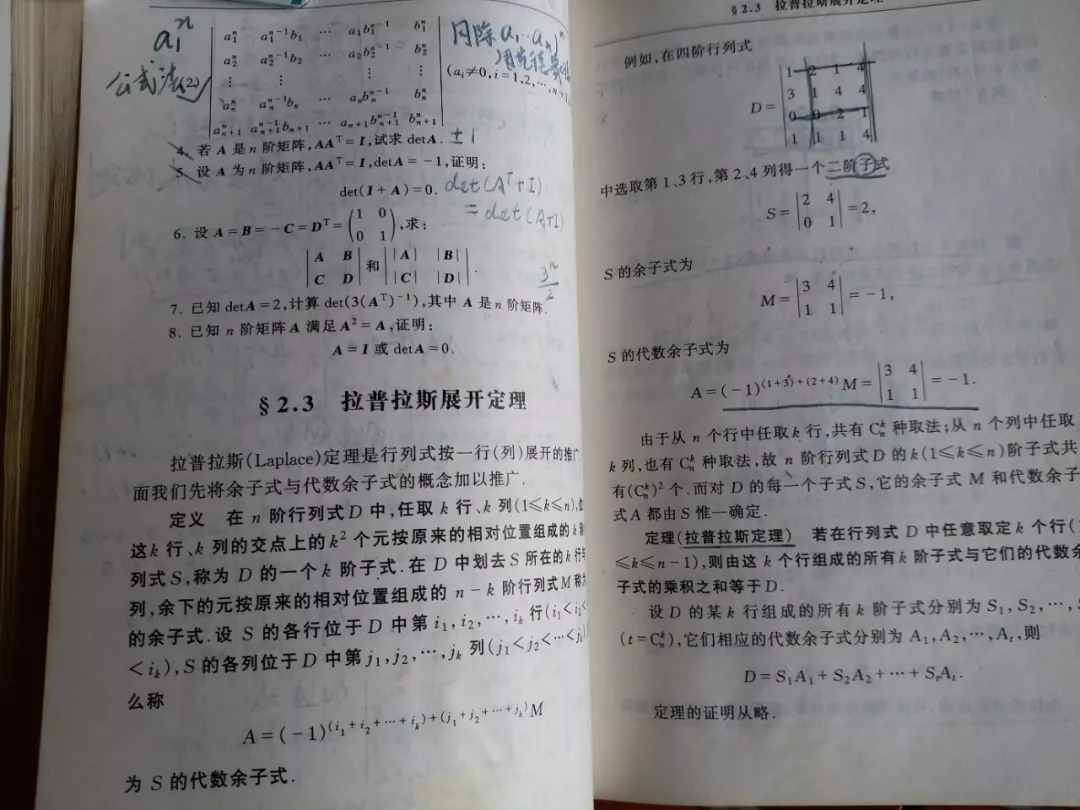 a₁ⁿ
公式法(2)
a₁ⁿ a₁ⁿ⁻¹b₁ ⋯ a₁b₁ⁿ⁻¹ b₁ⁿ
a₂ⁿ a₂ⁿ⁻¹b₂ ⋯ a₂b₂ⁿ⁻¹ b₂ⁿ
⋮ ⋮ ⋮ ⋮
aₙⁿ aₙⁿ⁻¹bₙ ⋯ aₙbₙⁿ⁻¹ bₙⁿ
aₙ₊₁ⁿ aₙ₊₁ⁿ⁻¹bₙ₊₁ ⋯ aₙ₊₁bₙ₊₁ⁿ⁻¹ bₙ₊₁ⁿ
(aᵢ≠0,i=1,2,⋯,n+1)
4. 若 A 是 n 阶矩阵,AAᵀ=I,试求 detA. ±1
5. 设 A 为 n 阶矩阵,AAᵀ=I,detA=-1,证明:
det(I+A)=0. det(Aᵀ+I)
=det(A+I)
6. 设 A=B=-C=Dᵀ=(1 0
0 1),求:
|A B
C D| 和 ||A| |B|
|C| |D||.
3ⁿ
2
7. 已知 detA=2,计算 det(3(Aᵀ)⁻¹),其中 A 是 n 阶矩阵.
8. 已知 n 阶矩阵 A 满足 A²=A,证明:
A=I 或 detA=0.
§2.3 拉普拉斯展开定理
拉普拉斯(Laplace)定理是行列式按一行(列)展开的推广.
面我们先将余子式与代数余子式的概念加以推广.
定义 在 n 阶行列式 D 中,任取 k 行、k 列(1≤k≤n),
这 k 行、k 列的交点上的 k² 个元按原来的相对位置组成的 k
列式 S,称为 D 的一个 k 阶子式.在 D 中划去 S 所在的 k 行与
列,余下的元按原来的相对位置组成的 n-k 阶行列式 M 称为
的余子式.设 S 的各行位于 D 中第 i₁,i₂,⋯,iₖ 行(i₁<i₂<
<iₖ),S 的各列位于 D 中第 j₁,j₂,⋯,jₖ 列(j₁<j₂<⋯<jₖ)
么称
A=(-1)^(i₁+i₂+⋯+iₖ)+(j₁+j₂+⋯+jₖ)M
为 S 的代数余子式.
§2.3 拉普拉斯展开定理
例如,在四阶行列式
D=|1 2 1 4
3 1 4 4
0 0 2 1
1 1 1 4|
中选取第 1、3 行,第 2、4 列得一个二阶子式
S=|2 4
0 1|=2,
S 的余子式为
M=|3 4
1 1|=-1,
S 的代数余子式为
A=(-1)^(1+3)+(2+4)M=|3 4
1 1|=-1.
由于从 n 个行中任取 k 行,共有 Cₙᵏ 种取法;从 n 个列中任取
k 列,也有 Cₙᵏ 种取法,故 n 阶行列式 D 的 k(1≤k≤n)阶子式共
有(Cₙᵏ)² 个.而对 D 的每一个子式 S,它的余子式 M 和代数余子
式 A 都由 S 惟一确定.
定理(拉普拉斯定理) 若在行列式 D 中任意取定 k 个行(1
≤k≤n-1),则由这 k 个行组成的所有 k 阶子式与它们的代数余
子式的乘积之和等于 D.
设 D 的某 k 行组成的所有 k 阶子式分别为 S₁,S₂,⋯,S
(t=Cₙᵏ),它们相应的代数余子式分别为 A₁,A₂,⋯,Aₜ,则
D=S₁A₁+S₂A₂+⋯+SₜAₜ.
定理的证明从略.